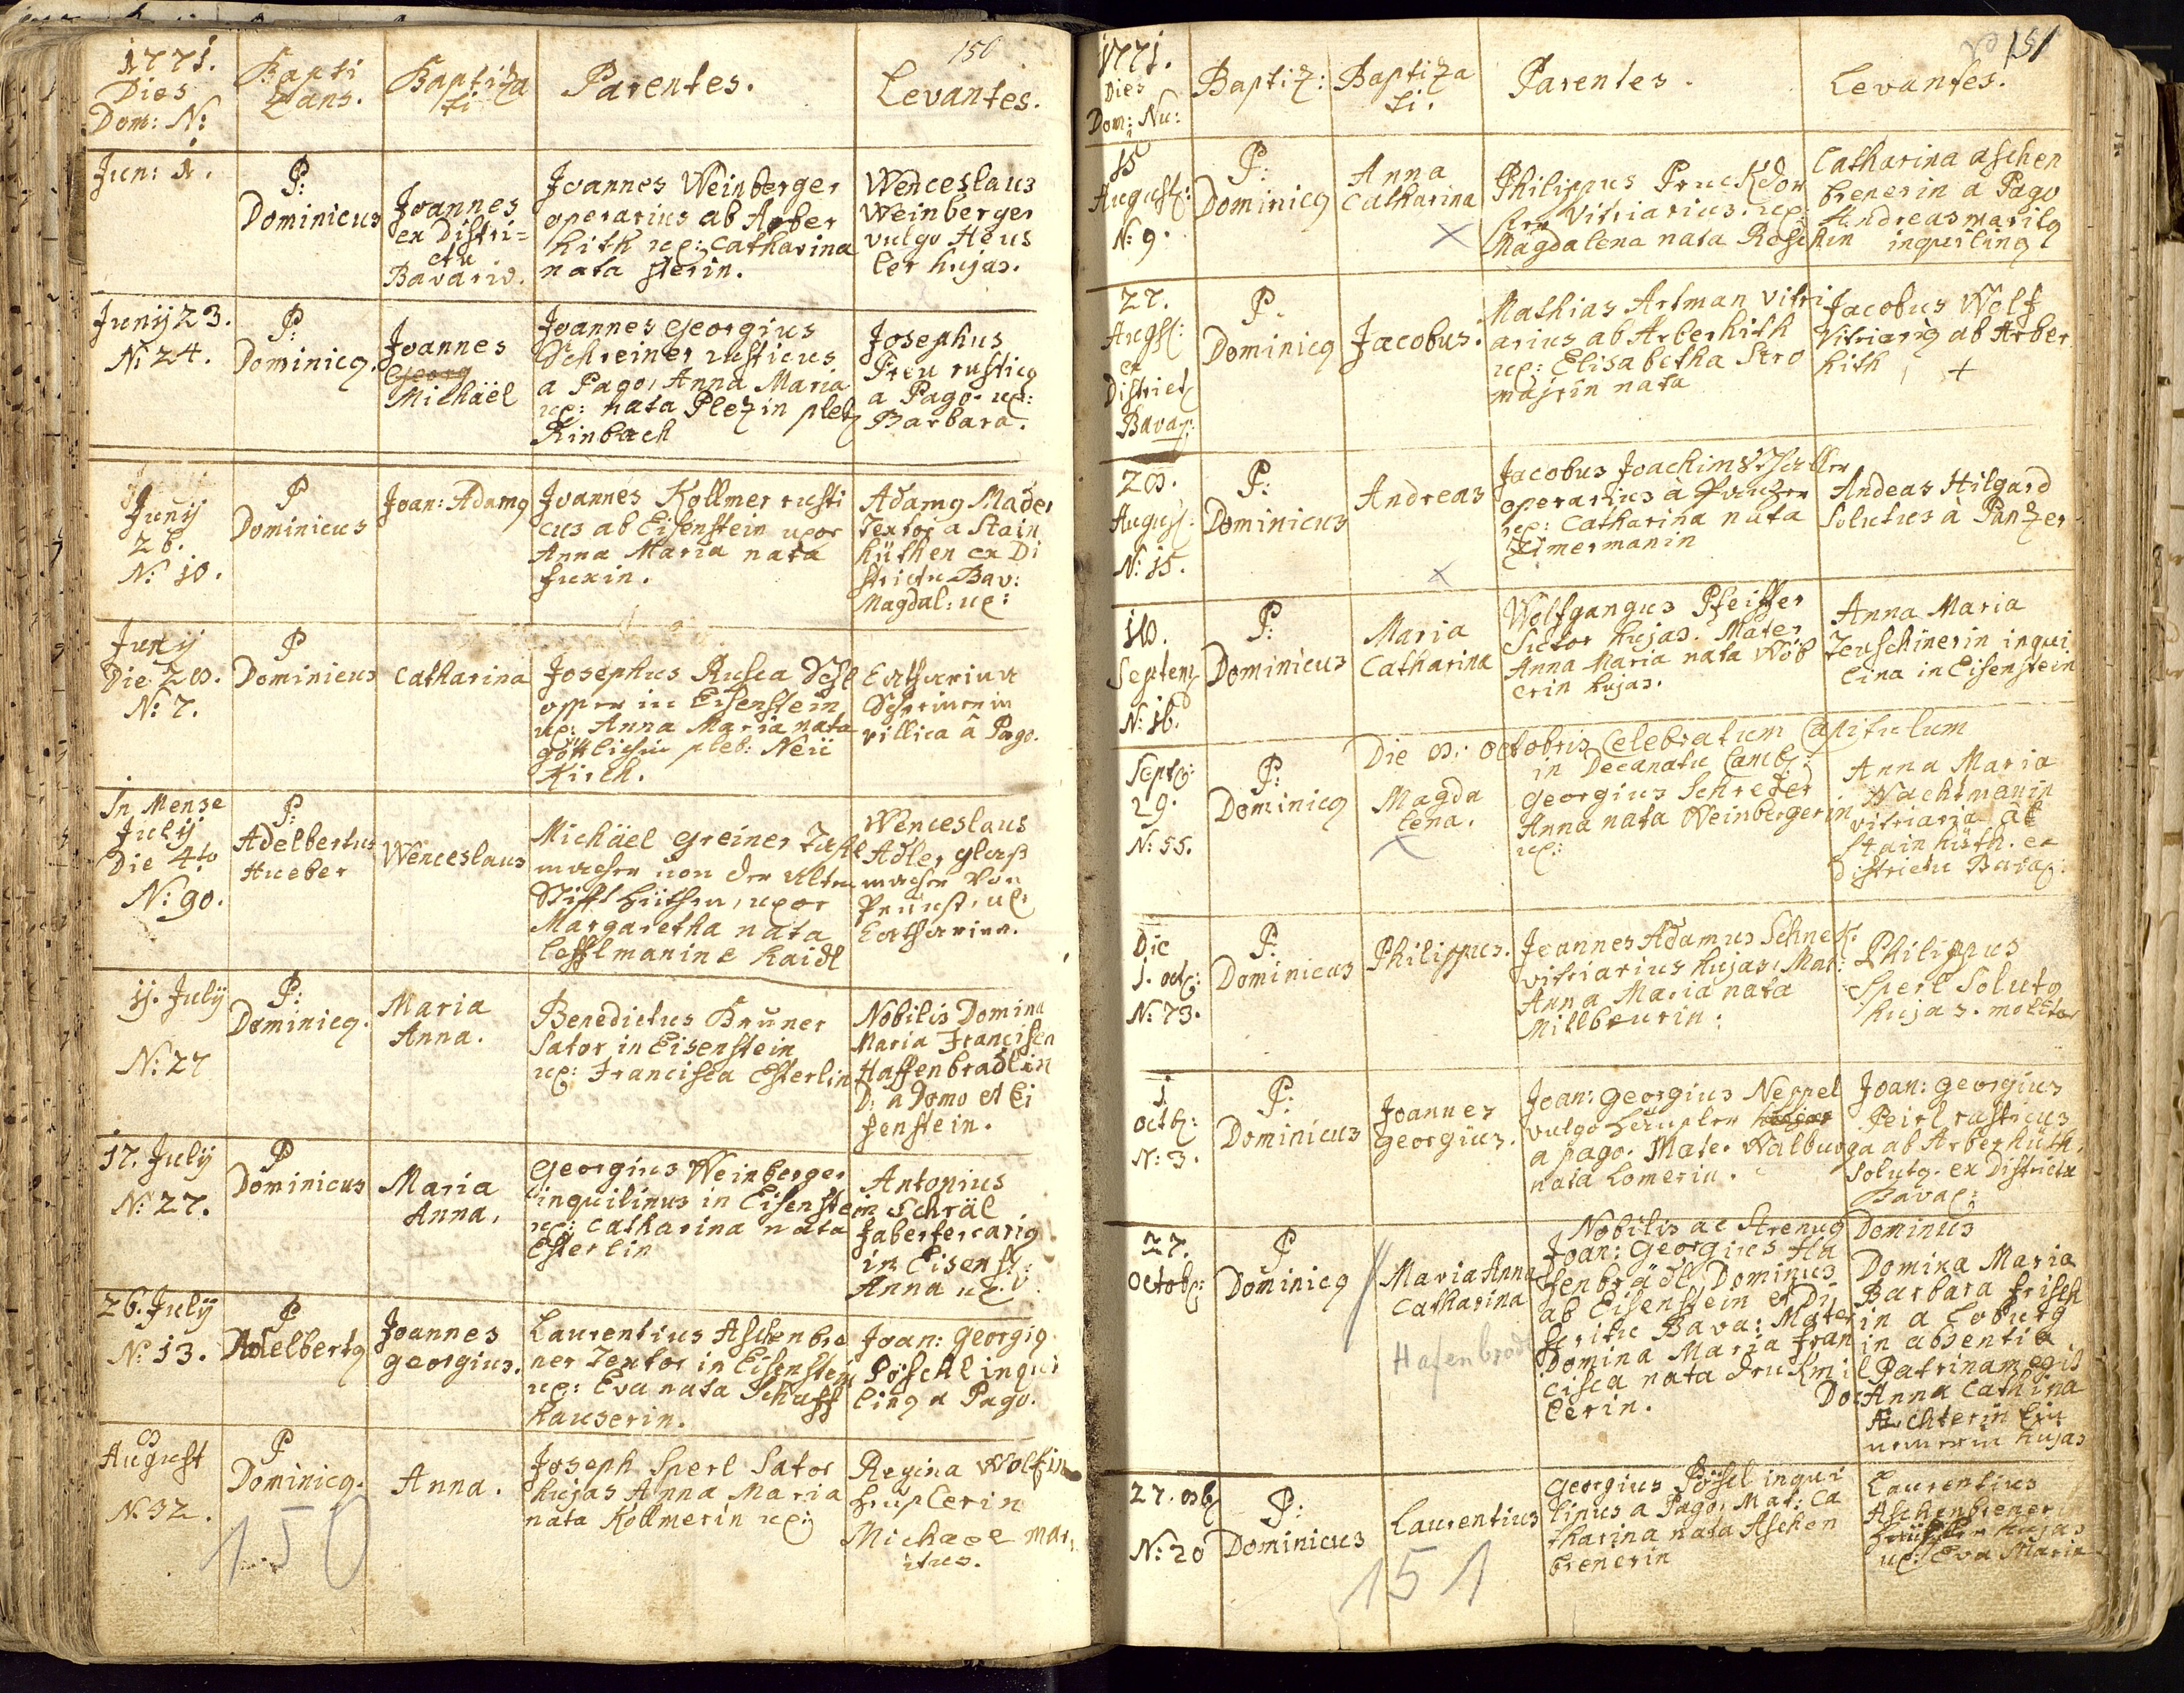 150
1771.
Dies
Dom: N:
Bapti
zans.
Baptiza
ti
Parentes.
Levantes.
Jun: 1.
P:
Dominicus
Joannes
ex Distri=
ctu
Bavariæ.
Joannes Weinberger
operarius ab Arber
hith ux: Catharina
nata sterin.
Wenceslaus
Weinberger
vulgo Heus
ler hujas.
Junij 23.
N: 24.
P:
Dominicq.
Joannes
Georg
Michäel
Joannes Georgius
Schreiner rusticus
a Pago, Anna Maria
ux: nata Plezin pleb
Rinbach
Josephus
Preu rusticq
a Pago. ux:
Barbara.
Junij
26.
N: 10.
P
Dominicus
Joan: Adamq
Joannes Kollmer rusti
cus ab Eisenstein uxor
Anna Maria nata
fuxin.
Adamq Mader
Textor a Stain
hüthen ex Di
strictu Bav:
Magdal: ux:
Junij
Die 28.
N: 7.
P
Dominicus
Catharina
Josephus Rusca
in Eisenstein
ux: Anna Maria nata
göttlichin pleb: Neü
Kirch.
Catharina
Schreinerin
villica â Pago.
In Mense
Julij
Die 4to
N: 90.
P:
Adelbertus
Hueber
Wenceslaus
Michäel Greiner Tafl
macher von der alten
Stifft hüthen, uxor
Margaretha nata
Lefflmanin e haidl
Wenceslaus
Adler glaß
macher von
ux:
Catharina.
11. Julij
N: 27
P:
Dominicq.
Maria
Anna.
Benedictus Bruner
Sator in Eisenstein
ux: Francisca Esterlin
Nobilis Domina
Maria Francisca
Haffenbradlin
D: a Domo et Ei
senstein.
17. Julij
N: 27.
P
Dominicus
Maria
Anna.
Georgius Weinberger
inquilinus in Eisenstein
ux: Catharina nata
Esterlin
Antonius
Schräl
faber fercariq
in Eisenst:
Anna ux:
26. Julij
N: 13.
P
Adelbertq
Joannes
georgius.
Laurentius Aschenbre
ner Textor in Eisenstein
ux: Eva nata Schaff
hauserin.
Joan: Georgiq
Pöschl inqui
linq a Pago.
8
August
N: 32.
P
Dominicq.
Anna.
Joseph Sperl Sator
hujas Anna Maria
nata Kollmerin ux:
Regina Wolfin
heuslerin
Michael mar
itus.
150
151
1771.
Dies
Dom: Nu:
Baptiz:
Baptiza
ti.
Parentes.
Levantes.
15
August:
N: 9.
P:
Dominicq
Anna
Catharina
Philippus Pruckdor
fer Vitriarius. ux:
Magdalena nata Roschin
Catharina aschen
brenerin a Pago
Andreas maritq
inquilinq
27.
Augst:
ex
District
Bavar:
P.
Dominicq
Jacobus.
Mathias Artman vitri
arius ab Arberhith
ux: Elisabetha Stro
majrin nata
Jacobus Wolf
Vitriariq ab Arber
hith +
28.
August:
N: 15.
P:
Dominicus
Andreas
Jacobus Joachimsthaller
operarius à Panzer
ux: Catharina nata
Zimermanin
Andeas Hilgard
Solutus à Panzer
10.
Septem
N: 16.
P:
Dominicus
Maria
Catharina
Wolfgangus Pfeiffer
Sutor hujas. Mater
Anna Maria nata Wöb
erin hujas.
Anna Maria
Teuschinerin inqui
lina in Eisenstein
Die 8. Octobris Celebratum Capitulum
in Decanatu Camb:
Septb:
29.
N: 55.
P:
Dominicq
Magda
lena.
Georgius Schreder
Anna nata Weinbergerin
ux:
Anna Maria
Wachtmanin
vitriaria ab
Stainhüth. ex
districtu Bavar:
Die
1. oct:
N: 73.
P:
Dominicus
Philippus.
Joannes Adamus Schnek.
vitriarius hujas, Mat:
Anna Maria nata
Millbeurin.
Philippus
Sperl Solutq
hujas. molitor
1
octb:
N: 3.
P:
Dominicus
Joannes
Georgius.
Joan: Georgius Neppel
vulgo heusler hujas
a pago. Mater Walburga
nata Lomerin.
Joan: Georgius
Peirl rusticus
ab Arberhüth,
Solutq. ex Districtu
Bavar:
27.
Octob:
P
Dominicq
Maria Anna
Catharina
Hafenbrödl
Nobilis ac Strenuq Dominus
Joan: Georgius Ha
fenbrädl Dominus
ab Eisenstein et Di
strictu Bava: Mater
Domina Maria Fran
cisca nata Druckmil
lerin.
Domina Maria
Barbara frisch
in a Coburg
in absentia
Patrinam egit
Do: Anna Cathrina
hujas
27. 8b
N: 20
P:
Dominicus
Laurentius
Georgius Pöschl inqui
linus a Pago, Mat: Ca
tharina nata Aschen
brenerin
Laurentius
Aschenbrener
hujas
ux: Eva Maria
151